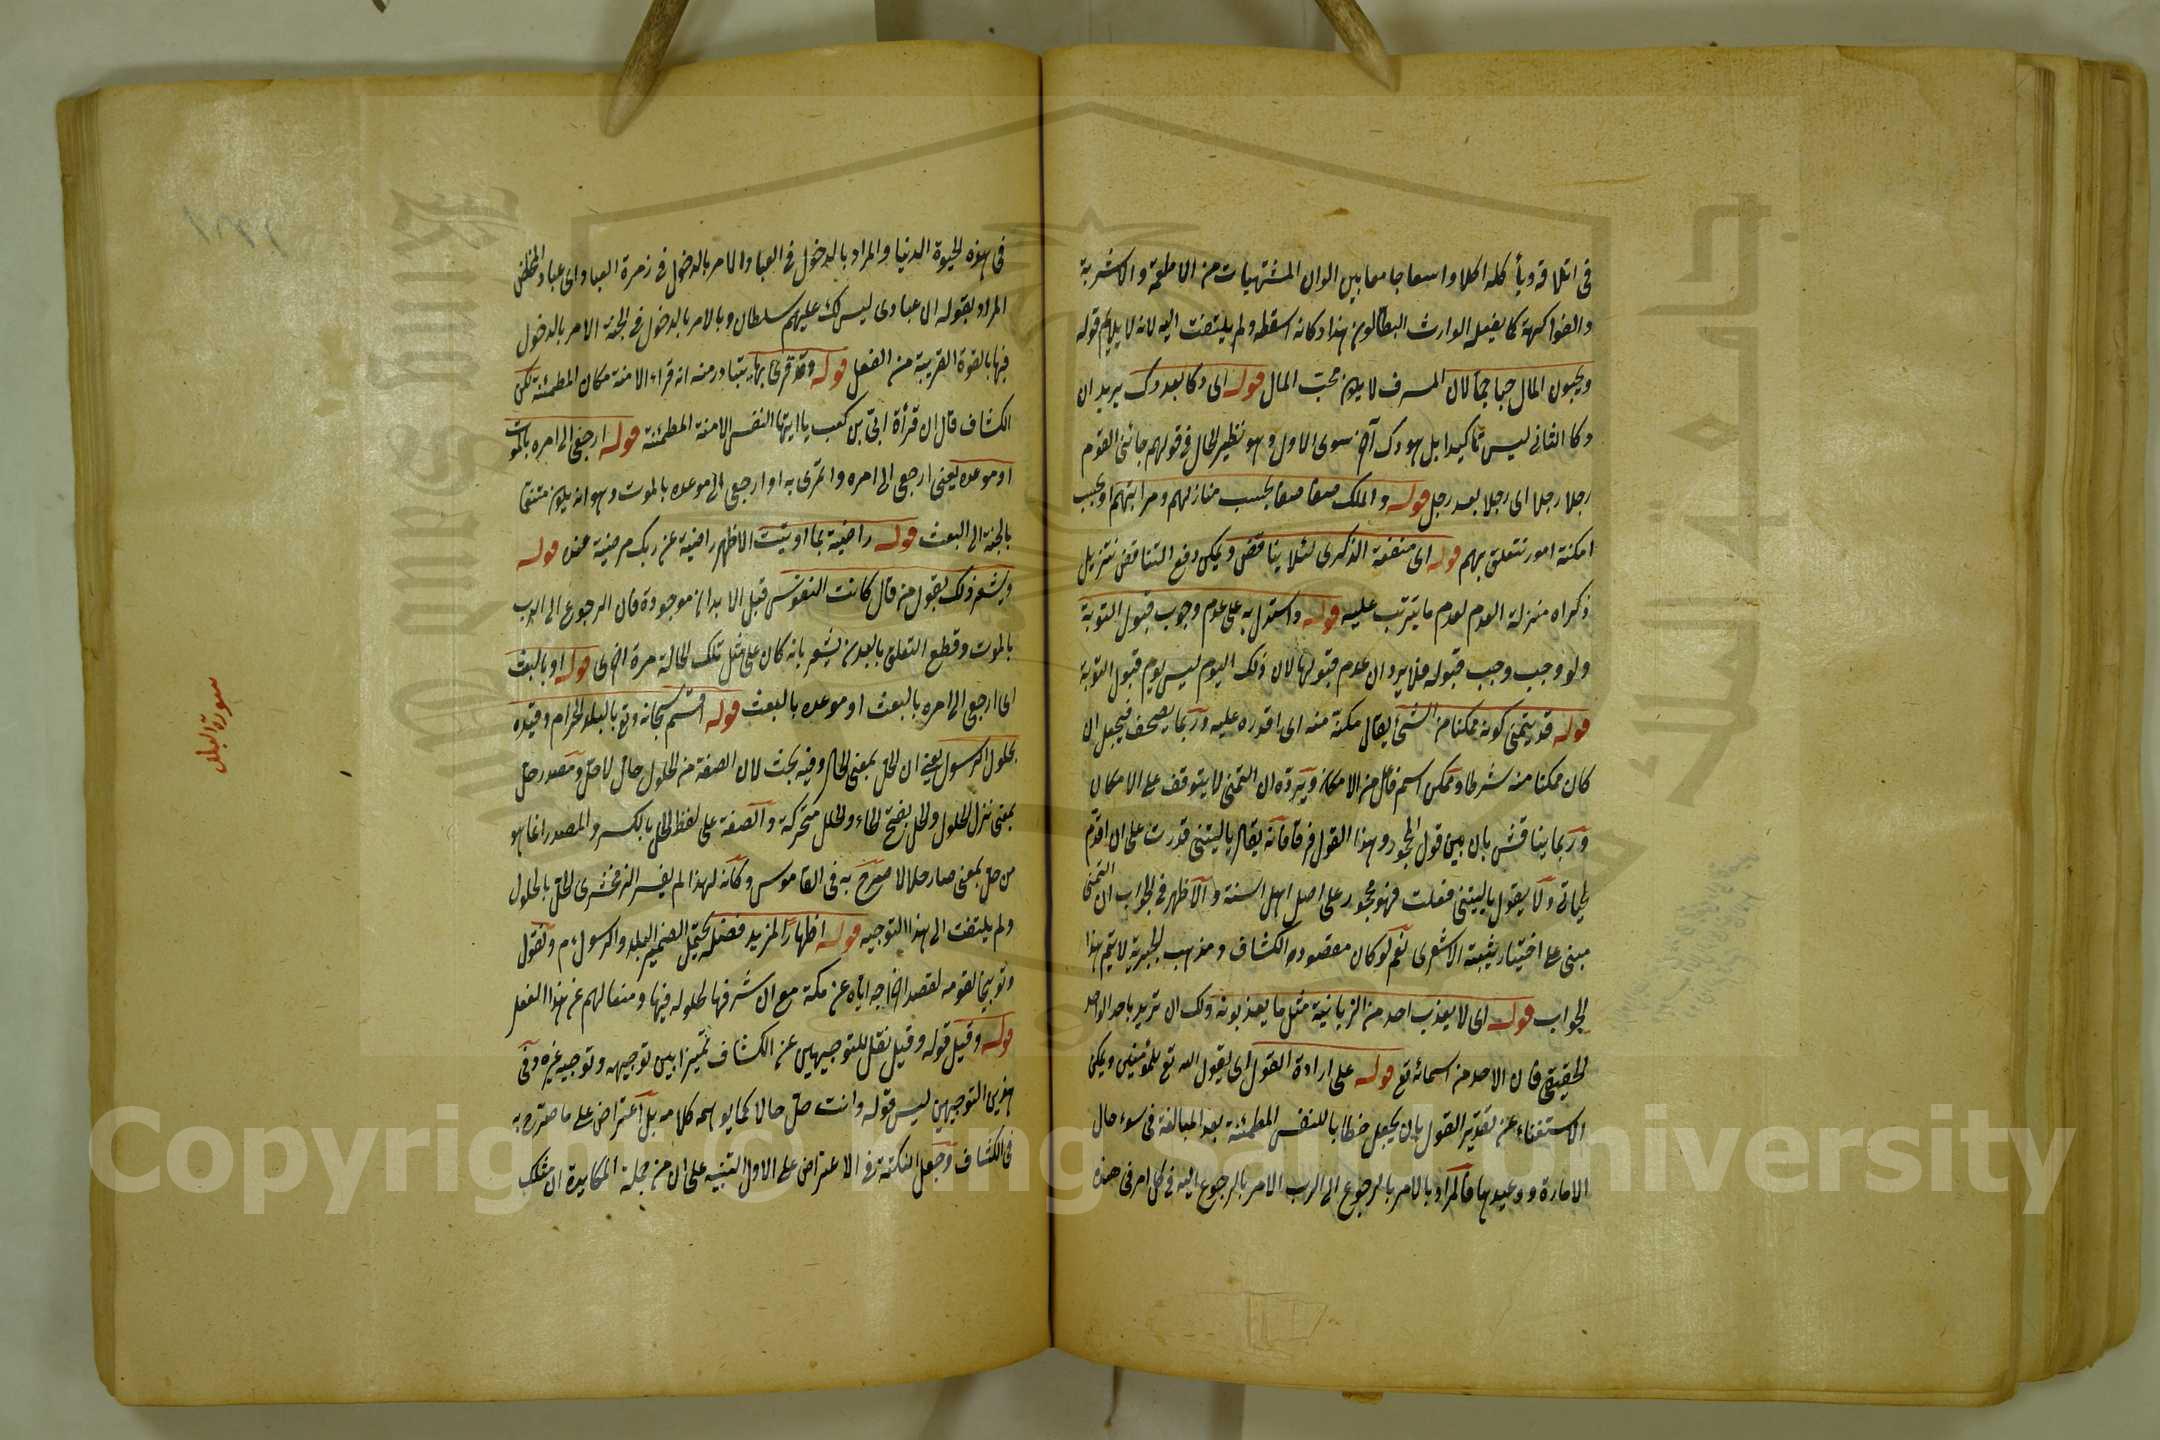 في اتلافه ويأكله اكلا واسعا جامعا بين الوان المشتهيات من الاطعمة والاشربة
والفواكهة كما يفعل الوارث البطالون هذا وكانه اسقطه ولم يلتفت اليه لانه لا يلايم قوله
ويحبون المال حبا جما لان المسرف لا يكون محب المال قوله اى دكا بعد دك يريد ان
دكا الثانى ليس تاكيدا بل هو دك آخر سوى الاول وهو نظير الحال في قولهم جائنى القوم
رجلا رجلا اى رجلا بعد رجل قوله والملك صفا صفا بحسب منازلهم ومراتبهم او بحسب
امكنة امور تتعلق بهم قوله اى منفعة الذكرى لئلا يناقض ويمكن دفع التناقض بتنزيل
ذكراه منزلة العدم لعدم ما يترتب عليه قوله واستدل به على عدم وجوب قبول التوبة
ولو وجب وجب قبوله فلا يرد ان عدم قبولها لان ذلك اليوم ليس يوم قبول التوبة
قوله قد يتمنى كونه ممكنا من الشئ يقال مكنة منه اى اقدره عليه وربما يصحف فيجعل ان
كان ممكنا منه شرطا وممكن اسم فاعل من الامكان ويرده ان التمنى لا يتوقف على الامكان
وربما يناقش بان بين قول المحجور وهذا القول فرقا فانه يقال ياليتنى قدرت على ان اقدم
لحياتى ولا يقول ياليتنى فعلت فهو محجور على اصل اهل السنة والاظهر في الجواب ان التمنى
مبنى على اختيار يثبته الاشعرى نعم لو كان مقصود الكشاف ومذهب الجبرية لا يتم هذا
الجواب قوله اى لا يعذب احد من الزبانية مثل ما يعذبونه ولك ان تريد باحد الواحد
الحقيقى فان الاحد من اسمائه تع قوله على ارادة القول اى يقول الله تع للمؤمنين ويمكن
الاستغناء عن تقدير القول بان يجعل خطابا للنفس المطمئنة بعد المبالغة في سوء حال
الامارة ووعيدها فالمراد بالامر بالرجوع الى الرب الامر بالرجوع اليه في كل امر في هذه
في هذه الحيوة الدنيا والمراد بالدخول في العباد الامر بالدخول في زمرة العباد اى عباد المخلصين
المراد بقوله ان عبادى ليس لك عليهم سلطان وبالامر بالدخول في الجنة الامر بالدخول
فيها بالقوة القريبة من الفعل قوله وقد قرئ بها يتبادر منه انه قراء الامنة مكان المطمئنة لكن
الكشاف قال ان قرأة ابى بن كعب يا ايتها النفس الامنة المطمئنة قوله ارجعى الى امره بالموت
او موعده يعنى ارجعى الى امره وأتمرى به او ارجعى الى موعده بالموت وهو انه يكون متنعما
بالجنة الى البعث قوله راضية بما اوتيت الاظهر راضية عن ربك مرضية عنده قوله
ويشعر ذلك بقول من قال كانت النفوس قبل الابدان موجودة فان الرجوع الى الرب
بالموت وقطع التعلق بالبدن يشعر بانه كان على مثل تلك الحالة مرة اخرى قوله او بالبعث
اى ارجعى الى امره بالبعث او موعده بالبعث قوله اقسم سبحانه وتع بالبلد الحرام وقيده
بحلول الرسول يعنى ان الحل بمعنى الحال وفيه بحث لان الصفة من الحلول حال لا حل ومصدر حل
بمعنى نزل الحلول والحل بفتح الحاء والحلل متحركة والصفة على لفظ الحل بالكسر والمصدر انما هو
من حل بمعنى صار حلالا صرح به في القاموس وكانه لهذا لم يفسر الزمخشرى الحل بالحلول
ولم يلتفت الى هذا التوجيه قوله اظهارا لمزيد فضله يحتمل الضمير البلد والرسول ءم ونقول
وتوبيخا لقومه لقصد اخراجه اياه عن مكة مع ان شرفها لحلوله فيها ومنعا لهم عن هذا الفعل
قوله وقيل قوله وقيل نقل للتوجيهين عن الكشاف تميزا بين توجيهه وتوجيه غيره وفى
هذين التوجيهين ليس قوله وانت حل حالا كما يوهمه كلامه بل اعتراض على ما صرح به
في الكشاف وجعل النكتة في الاعتراض على الاول التنبيه على ان من جملة المكابدة ان مثلك
سورة البلد